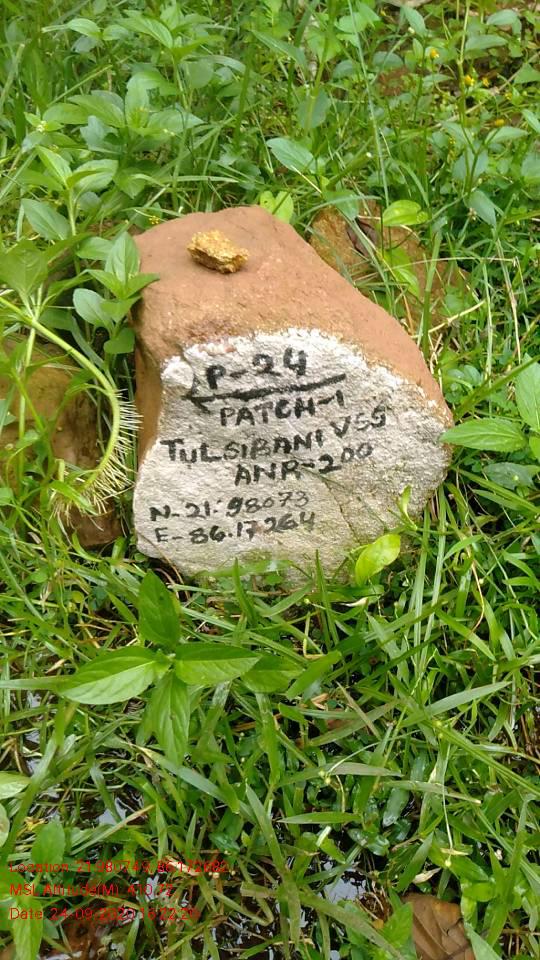 P-24
PATCH-1
TULSIBANI VSS
ANR-200
N-21.98073
E-86.17264
Location: 21.980749,86.172682
MSL Altitude(M): 410.77
Date: 24-09-2020